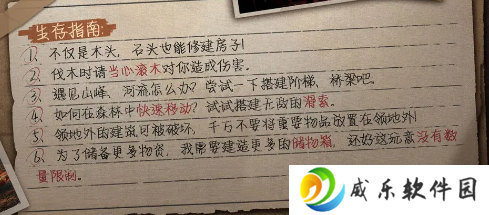 生存指南:
1. 不仅是木头, 石头也能修建房子!
2. 伐木时请当心滚木对你造成伤害.
3. 遇见山峰、河流怎么办? 尝试一下搭建阶梯、桥梁吧.
4. 如何在森林中快速移动? 试试搭建无敌的滑索.
5. 领地外的建筑可被破坏, 千万不要将重要物品放置在领地外!
6. 为了储备更多物资, 我需要建造更多的储物箱, 还好这玩意没有数
量限制.
威乐软件园